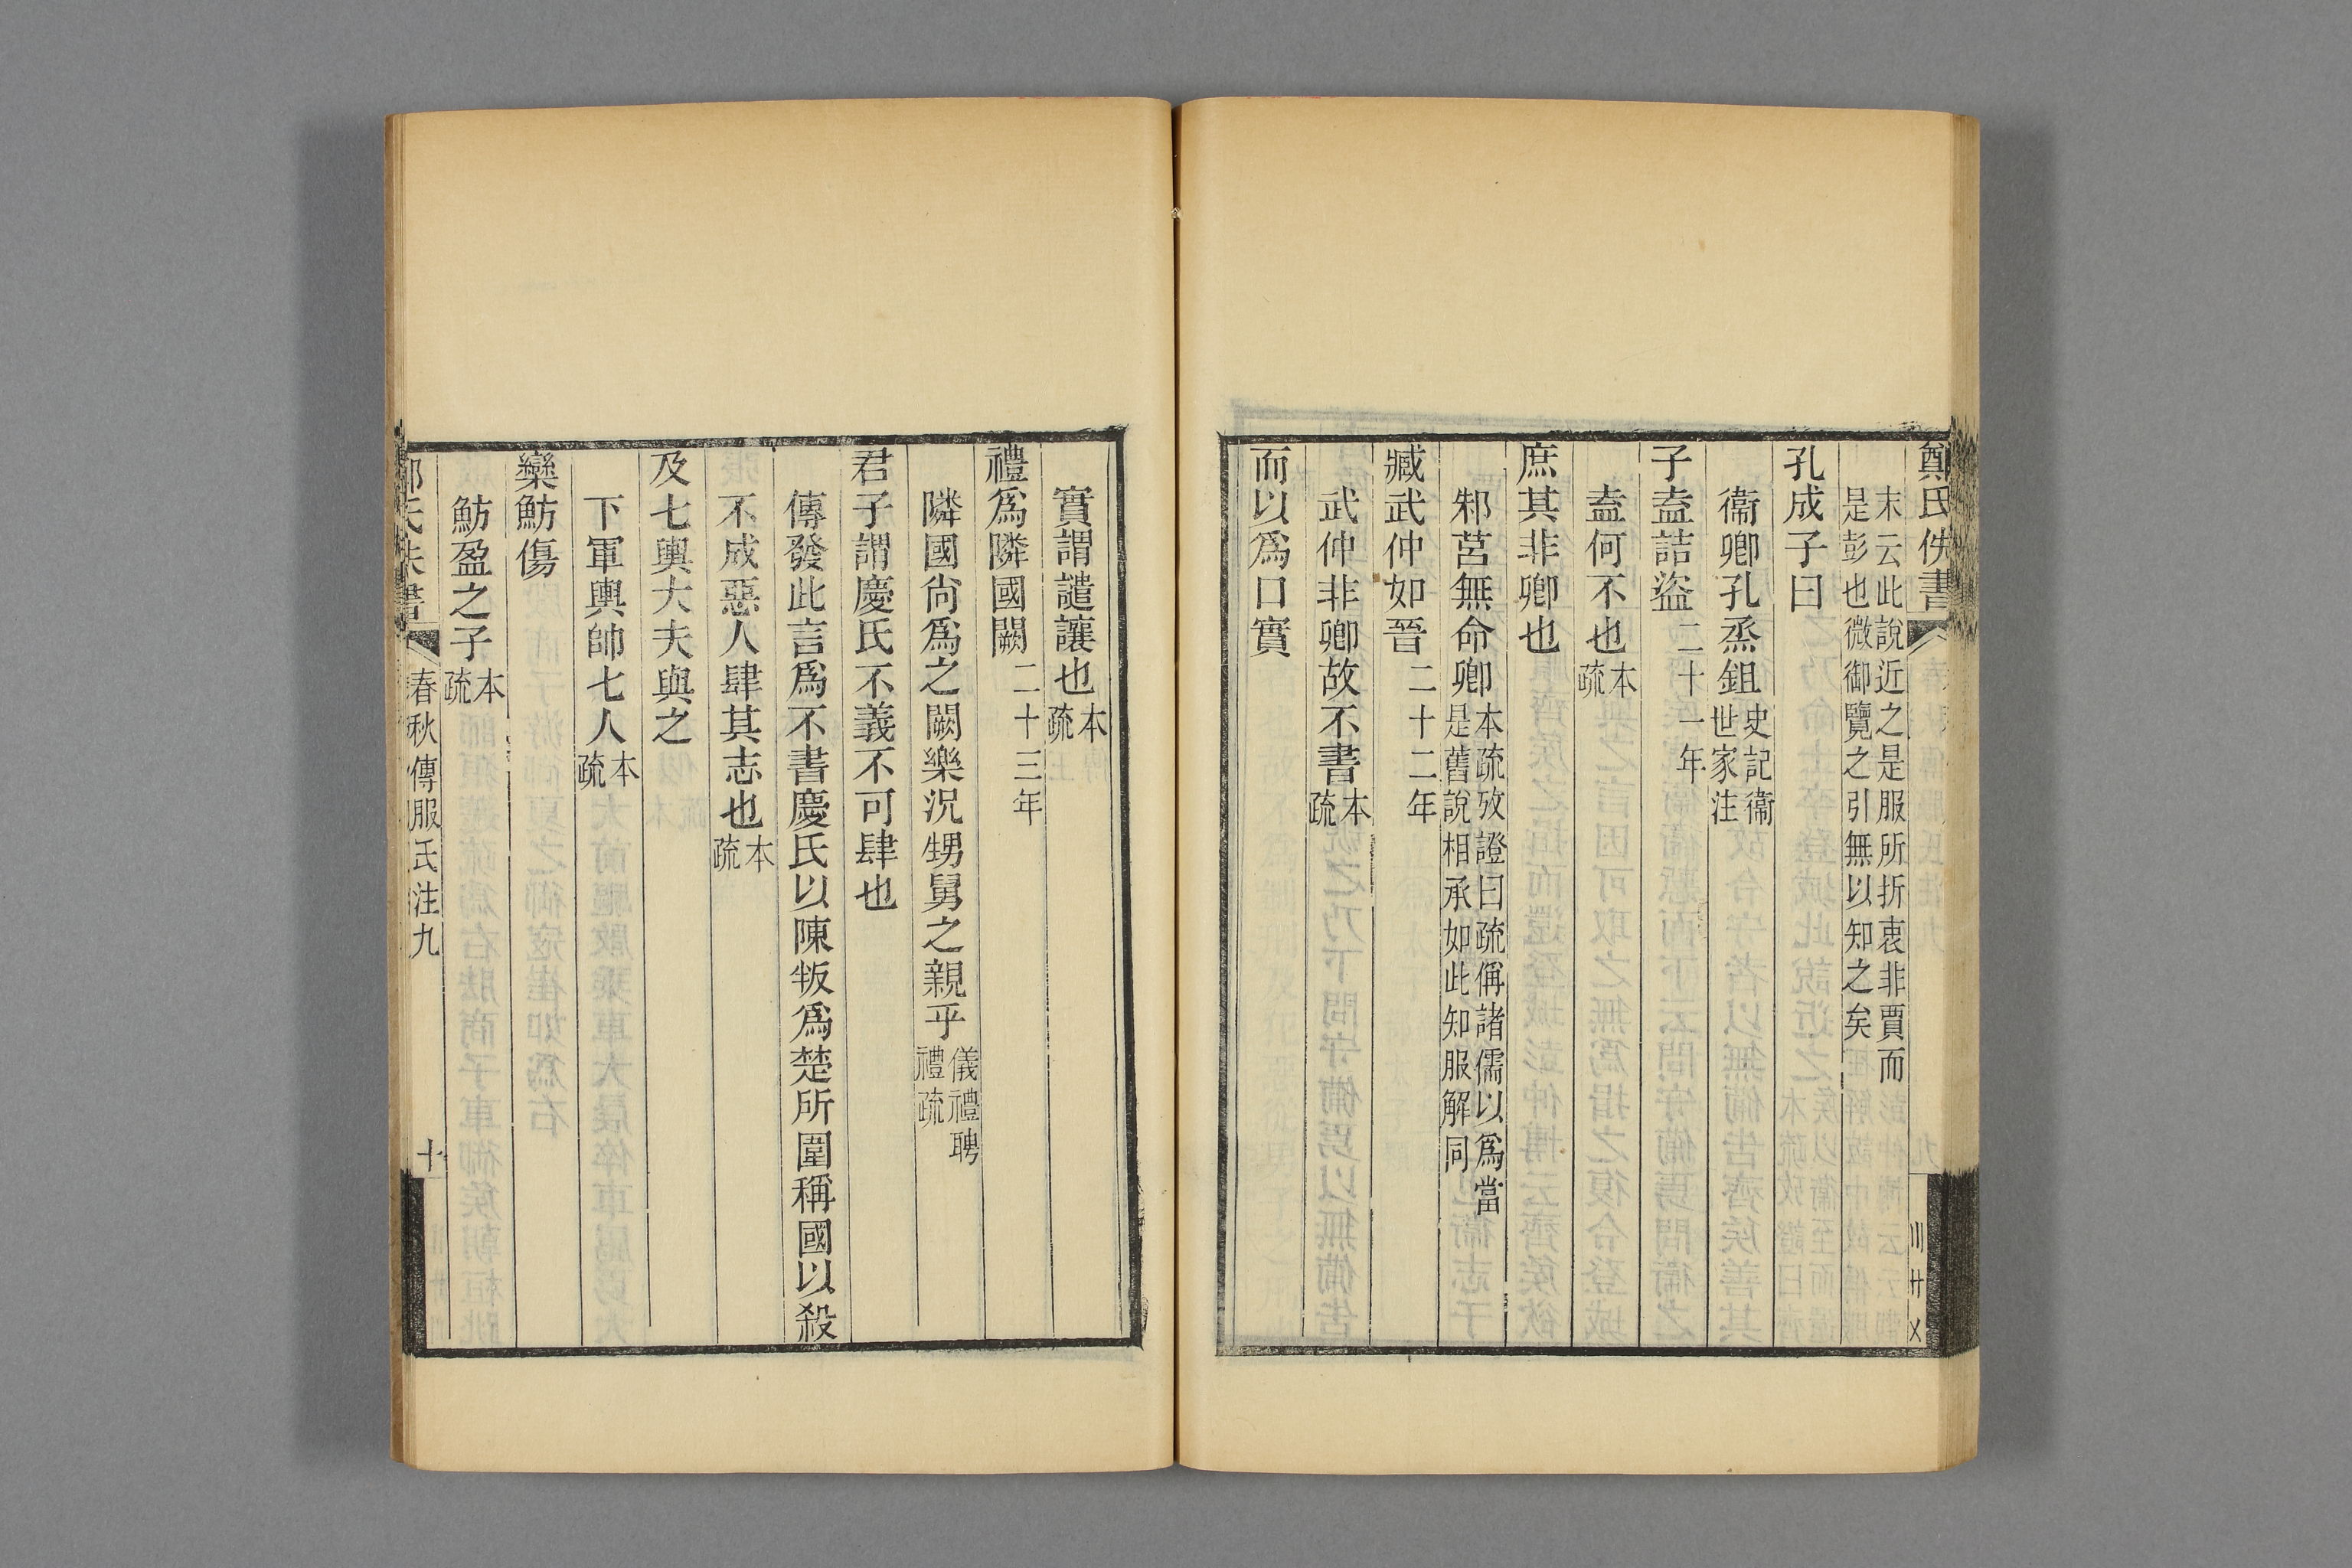 鄭氏佚書
末云此說近之是服所折衷非賈而
是彭也微御覽之引無以知之矣
孔成子曰
衞卿孔烝鉏史記衞
世家注
子盍詰盜二十一年
盍何不也本
疏
庶其非卿也
邾莒無命卿本疏攷證曰疏偁諸儒以爲當
是舊說相承如此知服解同
臧武仲如晉二十二年
武仲非卿故不書本
疏
而以爲口實
實謂譴讓也本
疏
禮爲隣國闕二十三年
隣國尙爲之闕樂況甥舅之親乎儀禮聘
禮疏
君子謂慶氏不義不可肆也
傳發此言爲不書慶氏以陳叛爲楚所圍稱國以殺
不成惡人肆其志也本
疏
及七輿大夫與之
下軍輿帥七人本
疏
欒魴傷
魴盈之子本
疏
春秋傳服氏注九
十